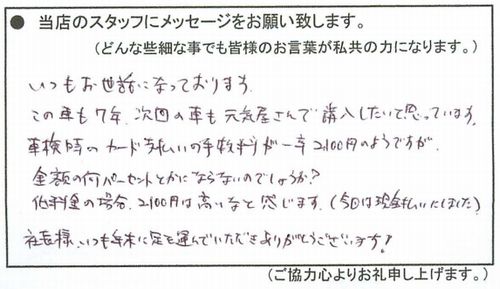 ● 当店のスタッフにメッセージをお願い致します。
(どんな些細な事でも皆様のお言葉が私共の力になります。)
いつもお世話になっております。
この車も7年、次回の車も元気屋さんで購入したいと思っています。
車検時のカード支払いの手数料が一率2,100円のようですが、
金額の何パーセントとかにならないのでしょうか?
低料金の場合、2,100円は高いなと感じます。(今回は現金払いにしました)
社長様、いつも年末に足を運んでいただきありがとうございます!
(ご協力心よりお礼申し上げます。)